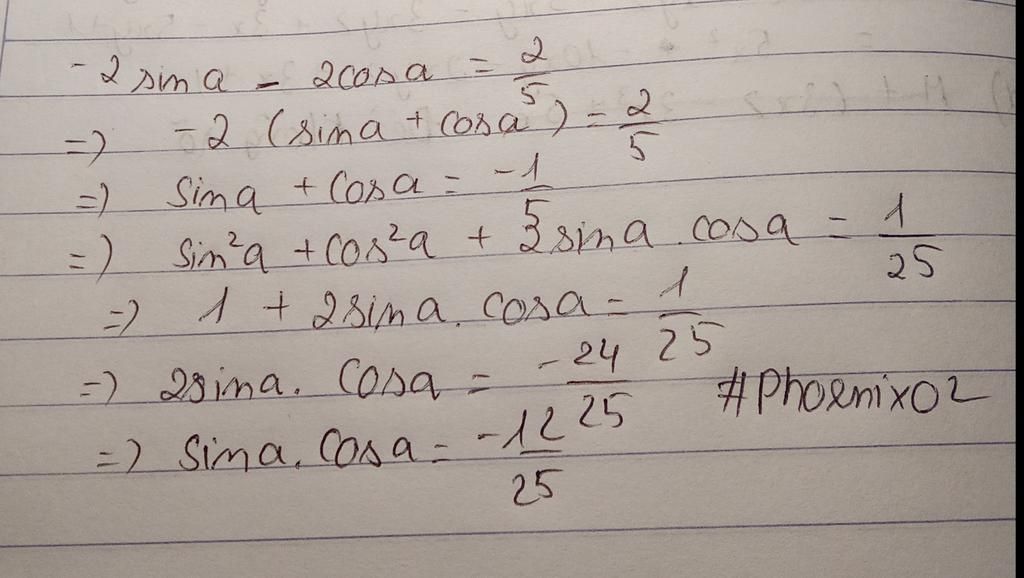 -2sina - 2cosa = 2/5
=) -2 (sina + cosa) = 2/5
=) sina + cosa = -1/5
=) sin²a + cos²a + 2sina.cosa = 1/25
=) 1 + 2sina.cosa = 1/25
=) 2sina.cosa = -24/25 #Phoenix02
=) sina.cosa = -12/25